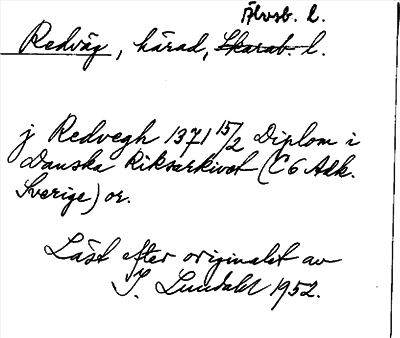 Älvsb. l.
Redväg, härad, Skarab. l.
j Redvegh 1371 15/2 Diplom i
Danska Riksarkivet (C 6 Adk.
Sverige) or.
Läst efter originalet av
I. Lundahl 1952.